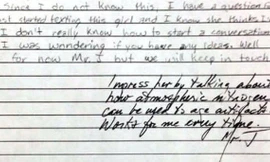 Since I do not know this, I have a question
just started texting this girl and I know she thinks I
I don't really know how to start a conversation
I was wondering if you have any ideas. Well
for now Mr. J but we will keep in touch
Impress her by talking about
how atmospheric nitrogen
can be used to age artifacts
Works for me every time.
Mr. J